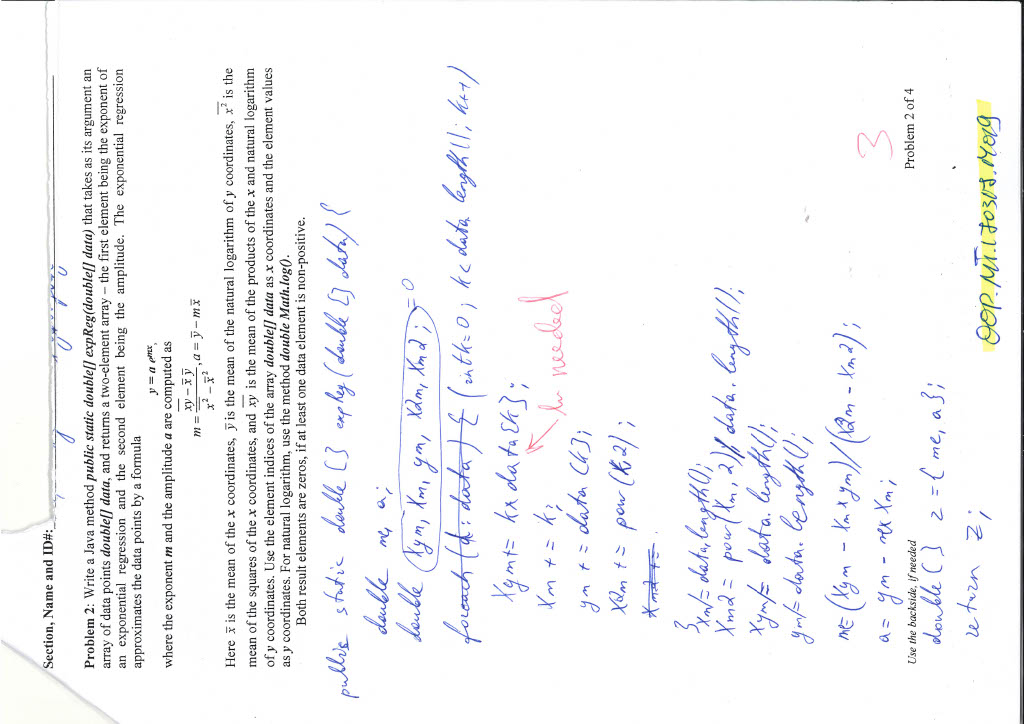 Section, Name and ID#:
Problem 2: Write a Java method public static double[] expReg(double[] data) that takes as its argument an
array of data points double[] data, and returns a two-element array – the first element being the exponent of
an exponential regression and the second element being the amplitude. The exponential regression
approximates the data points by a formula
y = a e^mx,
where the exponent m and the amplitude a are computed as
m = (x̅y̅ - x̅ y̅) / (x̅²̅ - x̅²), a = y̅ - m x̅
Here x̅ is the mean of the x coordinates, y̅ is the mean of the natural logarithm of y coordinates, x̅²̅ is the
mean of the squares of the x coordinates, and x̅y̅ is the mean of the products of the x and natural logarithm
of y coordinates. Use the element indices of the array double[] data as x coordinates and the element values
as y coordinates. For natural logarithm, use the method double Math.log().
Both result elements are zeros, if at least one data element is non-positive.
public static double [] expReg (double [] data) {
double me, a;
double xym, xm, ym, x2m, xm2; = 0
foreach (d : data) { (int k=0; k< data.length(); k++)
xym += k* data[k];
ln needed
xm += k;
ym += data [k];
x2m += pow (k,2);
xm2 +=
}
xm /= data.length();
xm2 = pow(xm, 2)/ data.length();
xym /= data.length();
ym /= data.length();
me = (xym - xm * ym) / (x2m - xm2);
3
a = ym - me* xm;
Use the backside, if needed Problem 2 of 4
double [] z = { me, a };
return z;
OOP.MT.170317.M019